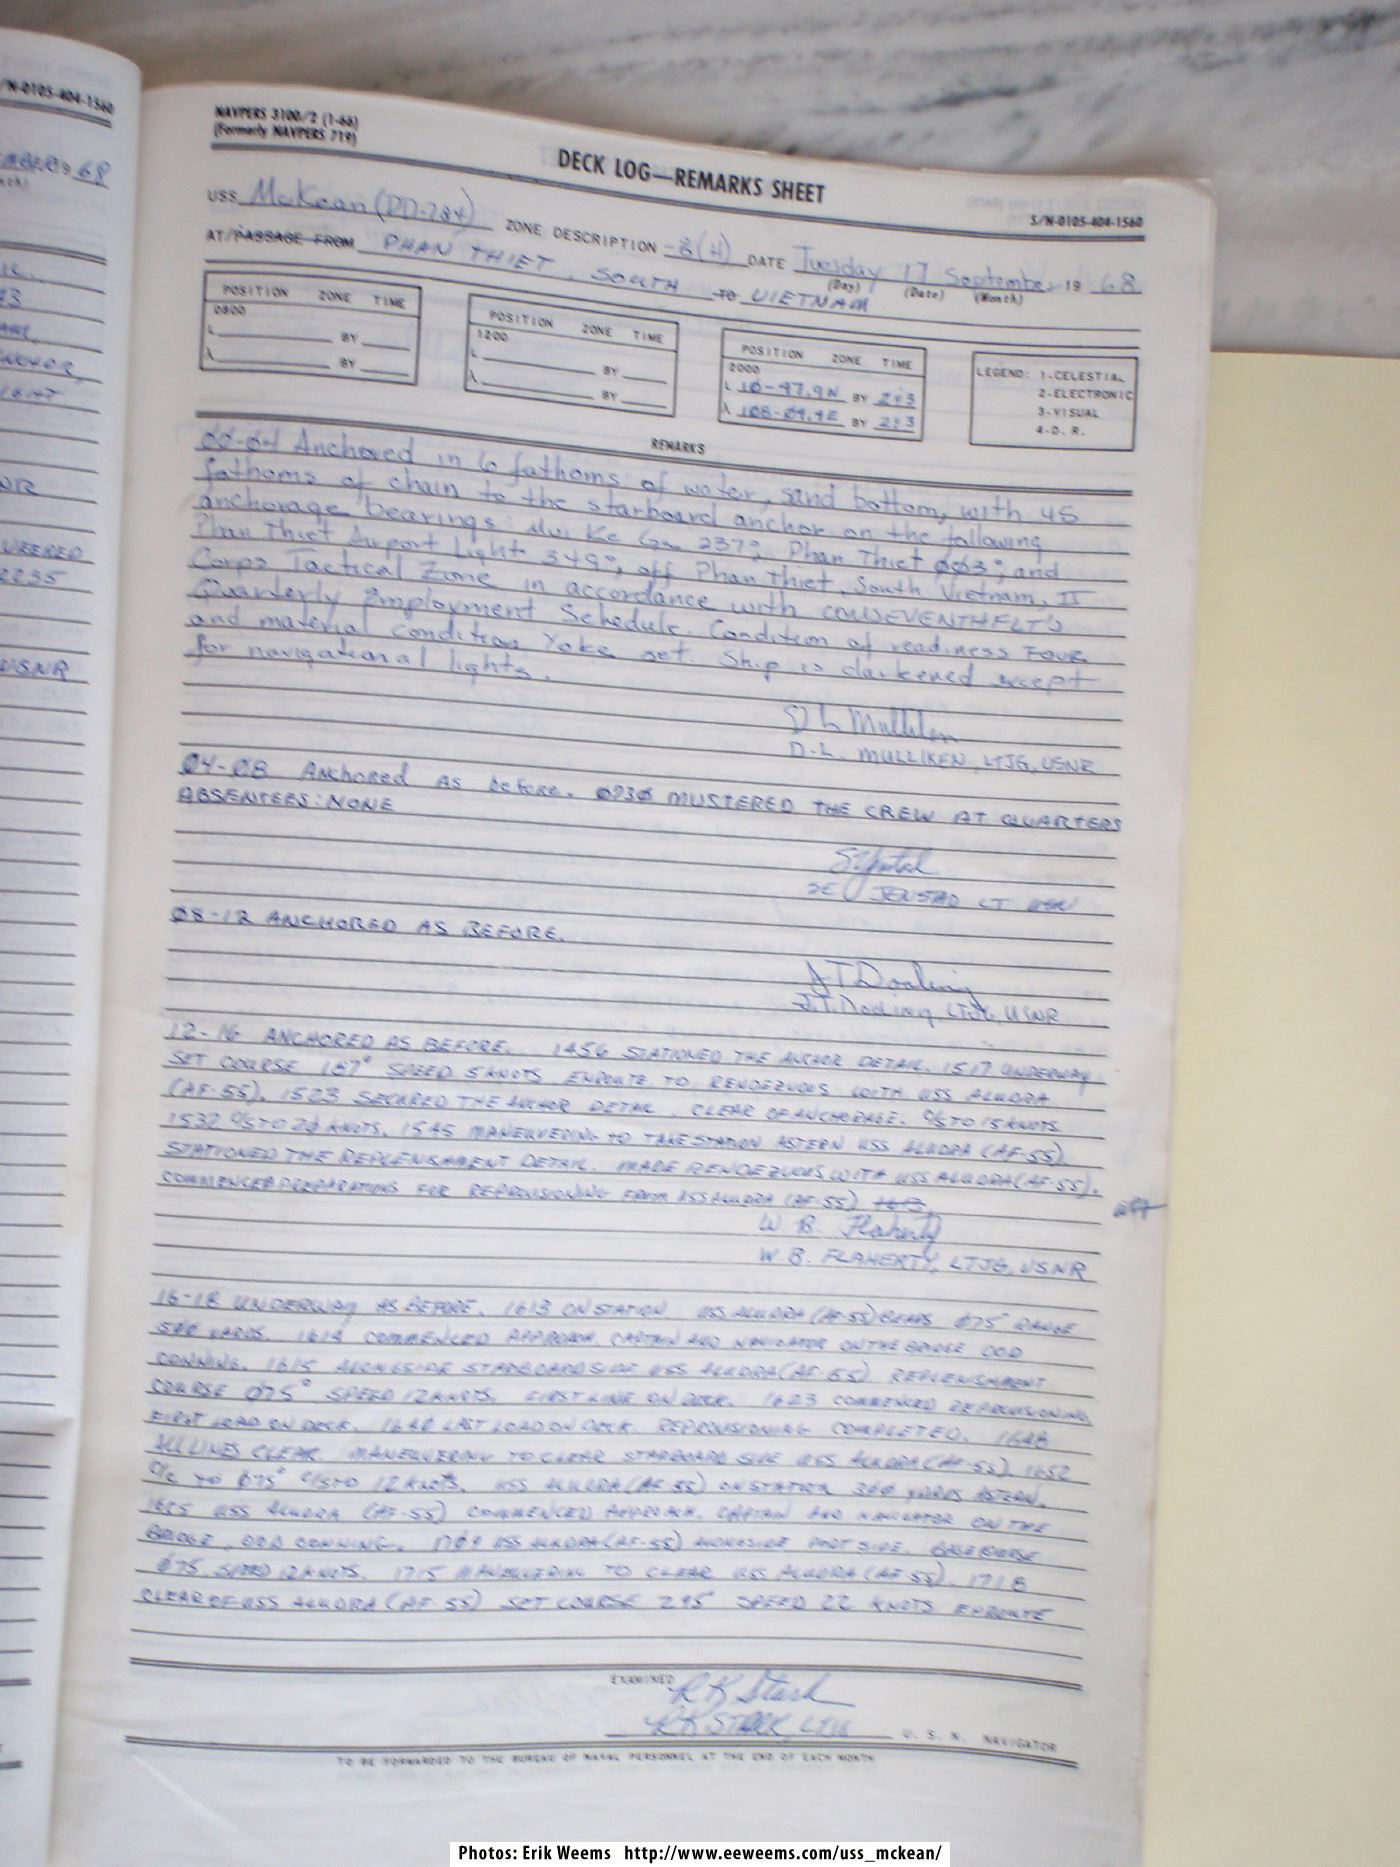 S/N-0105-404-1560
68
NAVPERS 3100/2 (1-66)
(Formerly NAVPERS 719)
DECK LOG—REMARKS SHEET
S/N-0105-404-1560
USS McKean (DD-784) ZONE DESCRIPTION -8(H) DATE Tuesday 17 September 19 68
(Day) (Date) (Month)
AT/PASSAGE FROM PHAN THIET, SOUTH TO VIETNAM
POSITION ZONE TIME
0800
L BY
λ BY
POSITION ZONE TIME
1200
L BY
λ BY
POSITION ZONE TIME
2000
L 10-47.9N BY 2:3
λ 108-04.4E BY 2:3
LEGEND: 1-CELESTIAL
2-ELECTRONIC
3-VISUAL
4-D. R.
REMARKS
00-04 Anchored in 6 fathoms of water, sand bottom, with 45
fathoms of chain to the starboard anchor on the following
anchorage bearings: Mui Ke Ga 237°, Phan Thiet 003°, and
Phan Thiet Airport Light 349°, off Phan Thiet, South Vietnam, II
Corps Tactical Zone in accordance with COMSEVENTHFLT'S
Quarterly Employment Schedule. Condition of readiness FOUR
and material condition Yoke set. Ship is darkened except
for navigational lights.
D L Mulliken
D. L. MULLIKEN, LTJG, USNR
04-08 Anchored as before. 0730 MUSTERED THE CREW AT QUARTERS
ABSENTEES: NONE
SE JENSTAD LT USN
08-12 ANCHORED AS BEFORE.
J T Dooling
J. T. Dooling, LTJG, USNR
12-16 ANCHORED AS BEFORE. 1456 STATIONED THE ANCHOR DETAIL. 1517 UNDERWAY
SET COURSE 187° SPEED 5 KNOTS ENROUTE TO RENDEZVOUS WITH USS ALUDRA
(AF-55). 1523 SECURED THE ANCHOR DETAIL, CLEAR OF ANCHORAGE. C/S TO 15 KNOTS.
1532 C/S TO 20 KNOTS. 1545 MANEUVERING TO TAKE STATION ASTERN USS ALUDRA (AF-55).
STATIONED THE REPLENISHMENT DETAIL. MADE RENDEZVOUS WITH USS ALUDRA (AF-55).
COMMENCED PREPARATIONS FOR REPROVISIONING FROM USS ALUDRA (AF-55)
W B. Flaherty
W. B. FLAHERTY, LTJG, USNR
16-18 UNDERWAY AS BEFORE. 1613 ON STATION. USS ALUDRA (AF-55) BEARS 075° RANGE
500 YARDS. 1614 COMMENCED APPROACH. CAPTAIN AND NAVIGATOR ON THE BRIDGE OOD
CONNING. 1615 ALONGSIDE STARBOARD SIDE USS ALUDRA (AF 55) REPLENISHMENT
COURSE 075° SPEED 12 KNOTS. FIRST LINE ON DECK. 1623 COMMENCED REPROVISIONING.
FIRST LOAD ON DECK. 1640 LAST LOAD ON DECK. REPROVISIONING COMPLETED. 1648
ALL LINES CLEAR. MANEUVERING TO CLEAR STARBOARD SIDE USS ALUDRA (AF-55). 1652
C/C TO 075° C/S TO 12 KNOTS. USS ALUDRA (AF-55) ON STATION 300 YARDS ASTERN.
1655 USS ALUDRA (AF-55) COMMENCED APPROACH. CAPTAIN AND NAVIGATOR ON THE
BRIDGE, OOD CONNING. 1709 USS ALUDRA (AF-55) ALONGSIDE PORT SIDE. BASE COURSE
075, SPEED 12 KNOTS. 1715 MANEUVERING TO CLEAR USS ALUDRA (AF 55). 1718
CLEAR OF USS ALUDRA (AF-55) SET COURSE 295° SPEED 22 KNOTS ENROUTE
EXAMINED
R K Stark
RK STARK, LTJG U. S. N. NAVIGATOR
TO BE FORWARDED TO THE BUREAU OF NAVAL PERSONNEL AT THE END OF EACH MONTH
Photos: Erik Weems http://www.eeweems.com/uss_mckean/